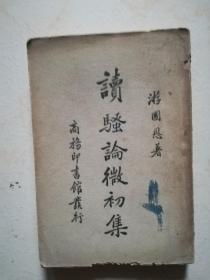 游國恩著
讀騷論微初集
商務印書館發行